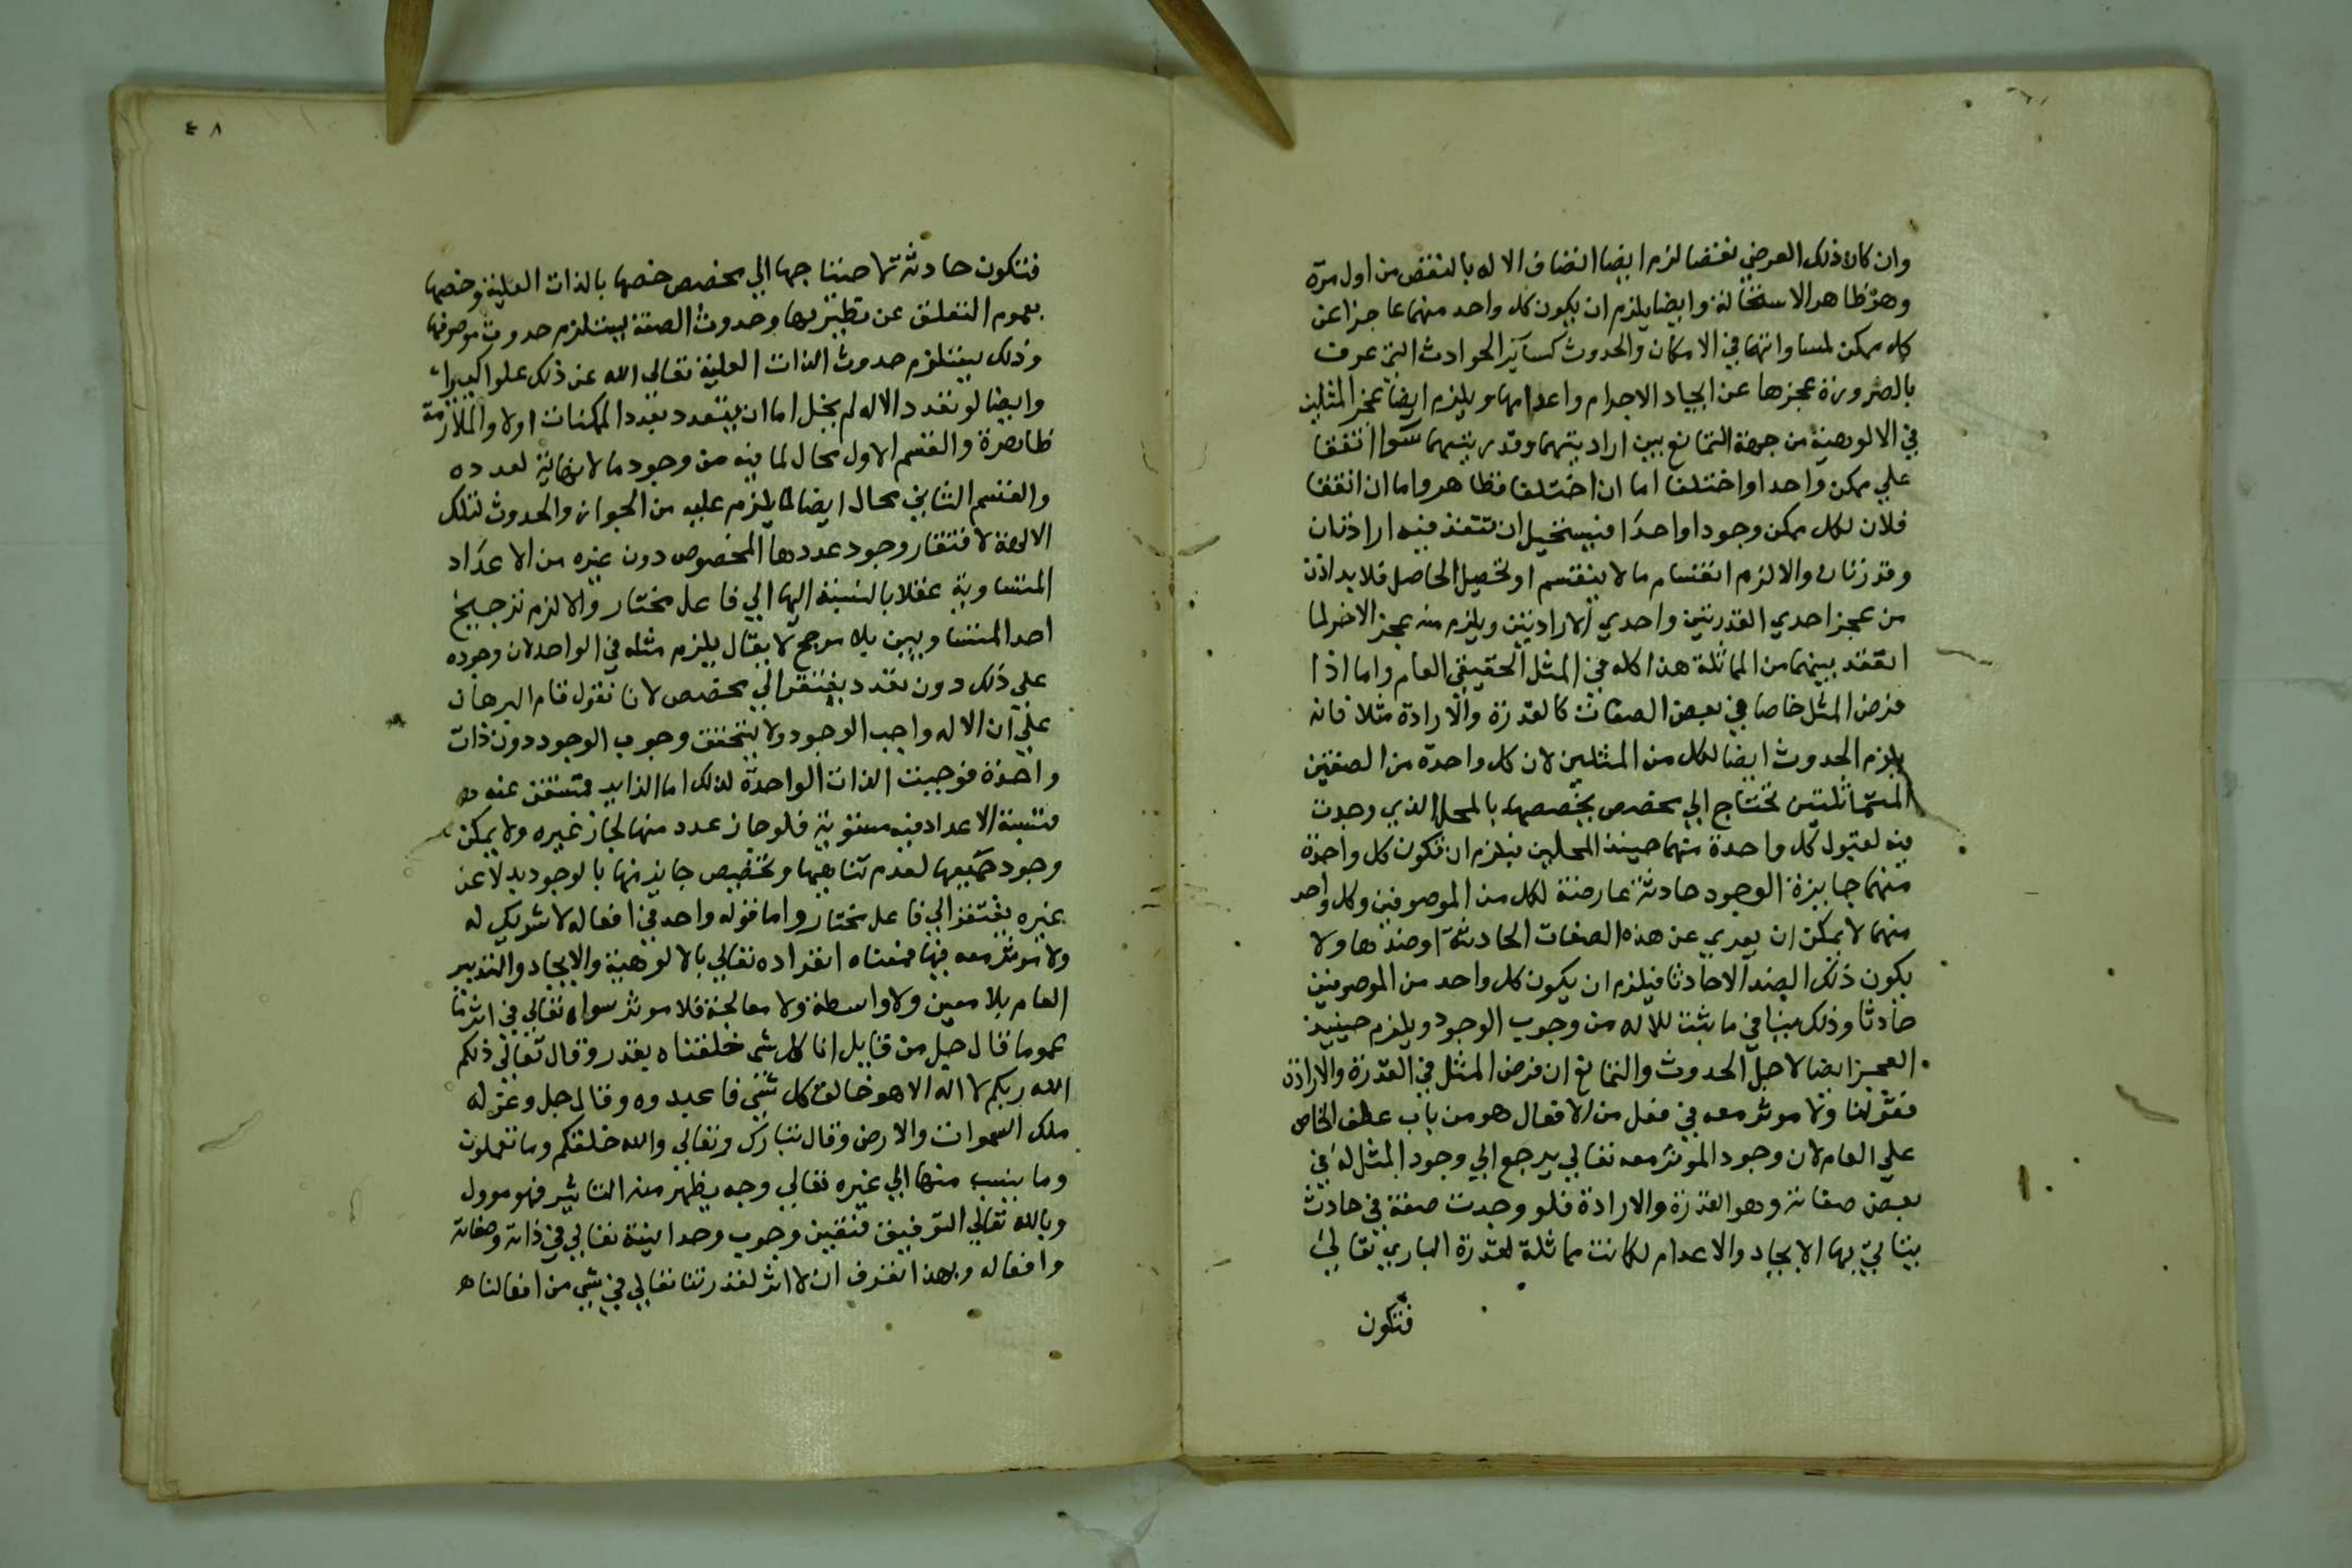 وان كان ذلك العرض نقصا لزم ايضا اتصاف الاله بالنقص من اول مرة
وهو ظاهر الاستحالة وايضا يلزم ان يكون كل واحد منهما عاجزا عن
كل ممكن لمساواتها في الامكان والحدوث كسآئر الحوادث التي عرف
بالضرورة عجزها عن ايجاد الاجرام واعدامها ويلزم ايضا عجز المثلين
في الالوهية من جهة التمانع بين ارادتيهما وقدرتيهما سوآ اتفقا
علي ممكن واحد او اختلفا اما ان اختلفا فظاهر واما ان اتفقا
فلان لكل ممكن وجودا واحدا فيستحيل ان تنفذ فيه ارادتان
وقدرتان والا لزم انقسام ما لا ينقسم او تحصيل الحاصل فلا بد اذن
من عجز احدي القدرتين واحدي الارادتين ويلزم منه عجز الاخر لما
انعقد بينهما من المماثلة هذا كله في المثل الحقيقي العام واما اذا
فرض المثل خاصا في بعض الصفات كالقدرة والارادة مثلا فانه
يلزم الحدوث ايضا لكل من المثلين لان كل واحدة من الصفتين
المتماثلتين تحتاج الي مخصص يخصصها بالمحل الذي وجدت
فيه لقبول كل واحدة منهما حينئذ المحلين فيلزم ان تكون كل واحدة
منهما جايزة الوجود حادثة عارضة لكل من الموصوفين وكل واحد
منهما لا يمكن ان يعري عن هذه الصفات الحادثة او ضدها ولا
يكون ذلك الضد الا حادثا فيلزم ان يكون كل واحد من الموصوفين
حادثا وذلك ينافي ما ثبت للاله من وجوب الوجود ويلزم حينيذ
العجز ايضا لاجل الحدوث والتمانع ان فرض المثل في القدرة والارادة
فقولنا ولا موثر معه في فعل من الافعال هو من باب عطف الخاص
علي العام لان وجود الموثر معه تعالي يرجع الي وجود المثل له في
بعض صفاته وهو القدرة والارادة فلو وجدت صفة في حادث
يتاتي بها الايجاد والاعدام لكانت مماثلة لقدرة الباري تعالي
فتكون
٤٨
فتكون حادثة لاحتياجها الي مخصص خصها بالذات العلية وخصها
بعموم التعلق عن نظيرها وحدوث الصفة يستلزم حدوث موصوفها
وذلك يستلزم حدوث الذات العلية تعالي الله عن ذلك علوا كبيرا
وايضا لو تعدد الاله لم يخل اما ان يتعدد بعدد الممكنات اولا والملازمة
ظاهرة والقسم الاول محال لما فيه من وجود ما لا نهاية لعدده
والقسم الثاني محال ايضا لما يلزم عليه من الجواز والحدوث لتلك
الالهة لافتقار وجود عددها المخصوص دون غيره من الاعداد
المتساوية عقلا بالنسبة اليها الي فاعل مختار والا لزم ترجيح
احد المتساويين بلا مرجح لا يقال يلزم مثله في الواحد لان وجوده
علي ذلك دون تعدد يفتقر الي مخصص لانا نقول قام البرهان
علي ان الاله واجب الوجود ولا يتحقق وجوب الوجود دون ذات
واحدة فوجبت الذات الواحدة لذلك اما الزايد فتستغن عنه
فنسبة الاعداد فيه مستوية فلو جاز عدد منها لجاز غيره ولا يمكن
وجود جميعها لعدم تناهيها وتخصيص جايز منها بالوجود بدلا عن
غيره يفتقر الي فاعل مختار واما قوله واحد في افعاله لا شريك له
ولا موثر معه فيها فمعناه انفراده تعالي بالالوهية والايجاد والتدبير
العام بلا معين ولا واسطة ولا معالجة فلا موثر سواه تعالي في اثر ما
عموما قال جل من قايل انا كل شي خلقناه بقدر وقال تعالي ذلكم
الله ربكم لا اله الا هو خالق كل شي فاعبدوه وقال جل وعز له
ملك السموات والارض وقال تبارك وتعالي والله خلقكم وما تعملون
وما ينسب منها الي غيره تعالي وجه يظهر منه التاثير فهو موول
وبالله تعالي التوفيق فتقين وجوب وحدانيته تعالي في ذاته وصفاته
وافعاله وبهذا تعرف ان لا اثر لقدرتنا تعالي في شي من افعالنا